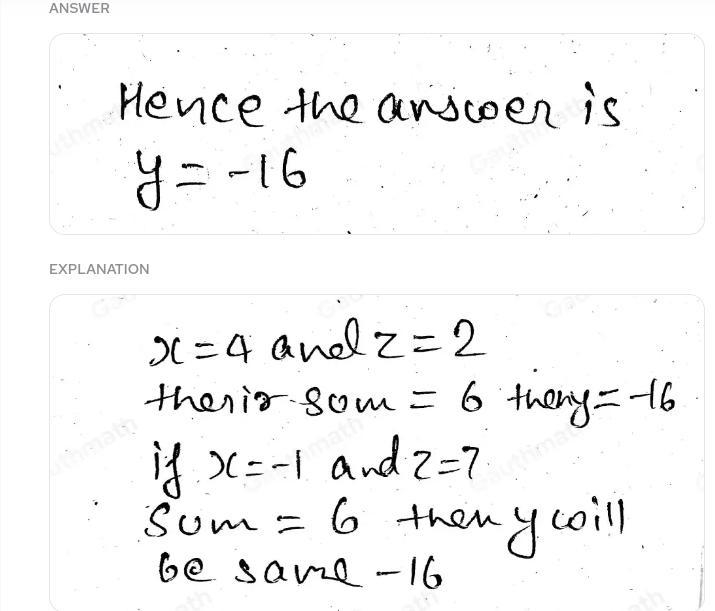 ANSWER
Hence the answer is
y = -16
EXPLANATION
x = 4 and z = 2
their sum = 6 then y = -16
if x = -1 and z = 7
Sum = 6 then y will
be same -16